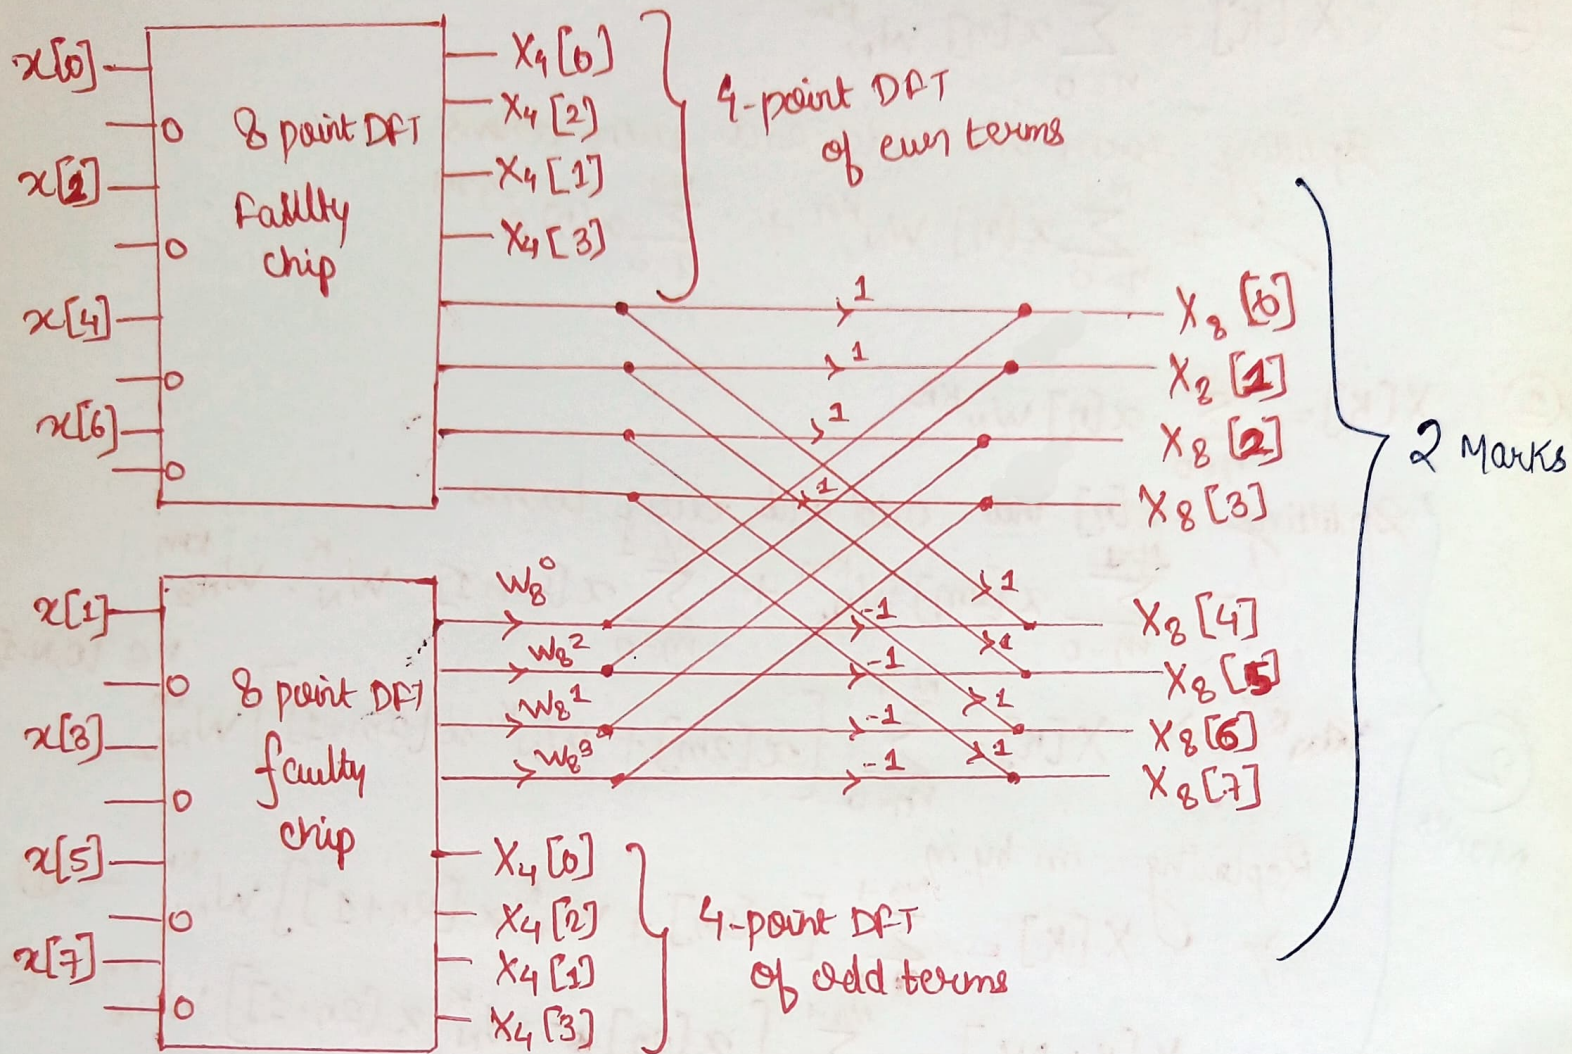 x[0]
0
x[2]
0
x[4]
0
x[6]
0
8 point DFT
Faulty
chip
X4[0]
X4[2]
X4[1]
X4[3]
4-point DFT
of even terms
1
1
1
1
X8[0]
X8[1]
X8[2]
X8[3]
2 Marks
x[1]
0
x[3]
0
x[5]
0
x[7]
0
8 point DFT
faulty
chip
W8^0
W8^2
W8^1
W8^3
1
1
1
1
-1
-1
-1
-1
X8[4]
X8[5]
X8[6]
X8[7]
X4[0]
X4[2]
X4[1]
X4[3]
4-point DFT
of odd terms